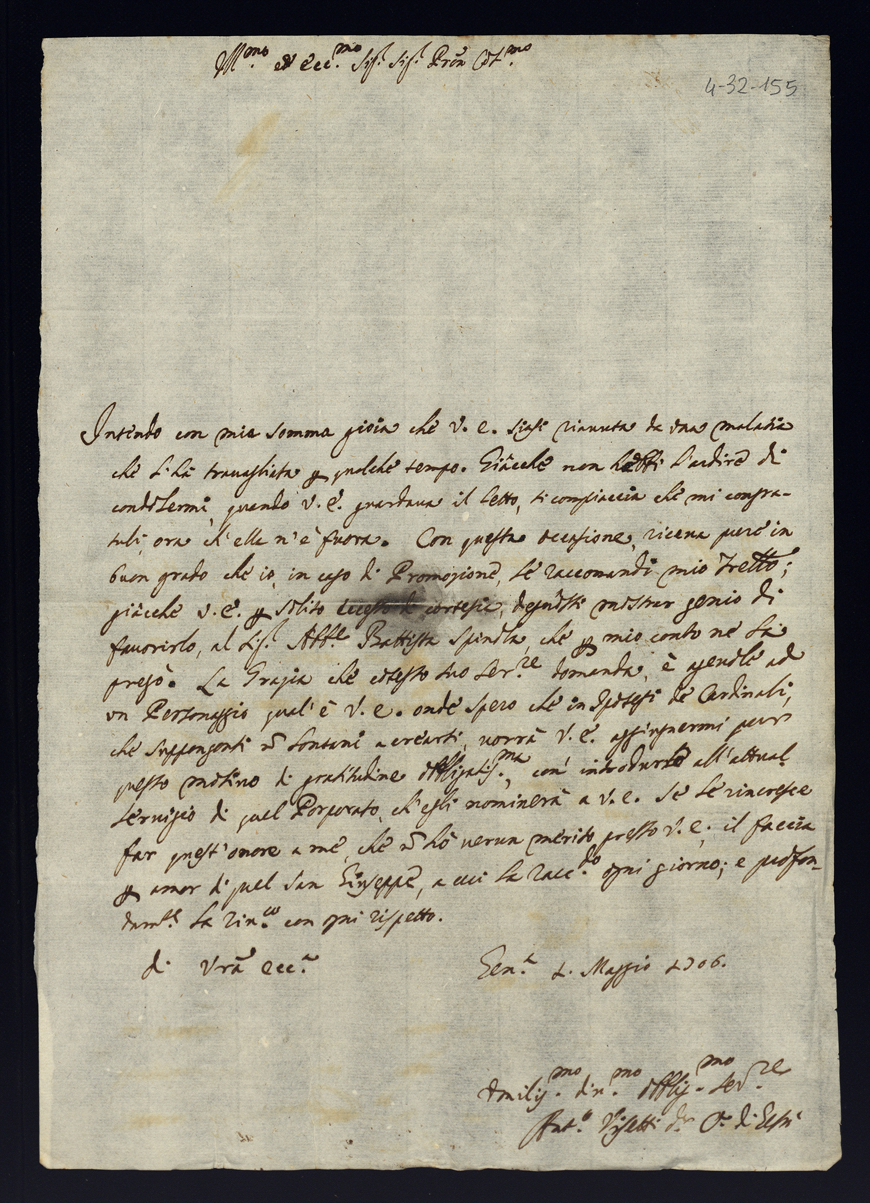 Ill.mo et Ecc.mo Sig.r Sig.r Prõn Col.mo
4-32-155
Intendo con mia somma gioia che V. E. siasi riavuta da una malatia
che l'hà travagliata p qualche tempo. Giacche non hebbi l'ardire di
condolermi, quando V. E. guardava il letto, si compiaccia che mi congra-
tuli, ora ch'ella n'è fuora. Con questa occasione, riceva pure in
buon grado che io, in caso di Promozione, le raccomandi mio Frello;
giacche V. E. p solito di cortesia, degnosi mostrar genio di
favorirlo, al Sig.r Abb.e Battista Spinola, che p mio conto ne la
pregò. La Grazia che cotesto suo Ser.re domanda, è agevole ad
un Personaggio qual'è V. E. onde spero che in de Cardinali,
che suppongonsi nõ lontani a crearsi, vorrà V. E. aggiugnermi pur
questo motivo di gratitudine obbligatis.ma, con introdurlo all'attual
servigio di quel Porporato, ch'egli nominerà a V. E. Se le rincresce
far quest'onore a me, che nõ hò verun merito presso V. E., il faccia
p amor di quel San Giuseppe, a cui la racc.do ogni giorno; e profon-
dam.te la riv.co con ogni rispetto.
di Vrã Ecc.a
Gen.a 1. Maggio 1706.
Umiliss.mo div.mo obblig.mo Ser.re
Ant.o Visetti d.